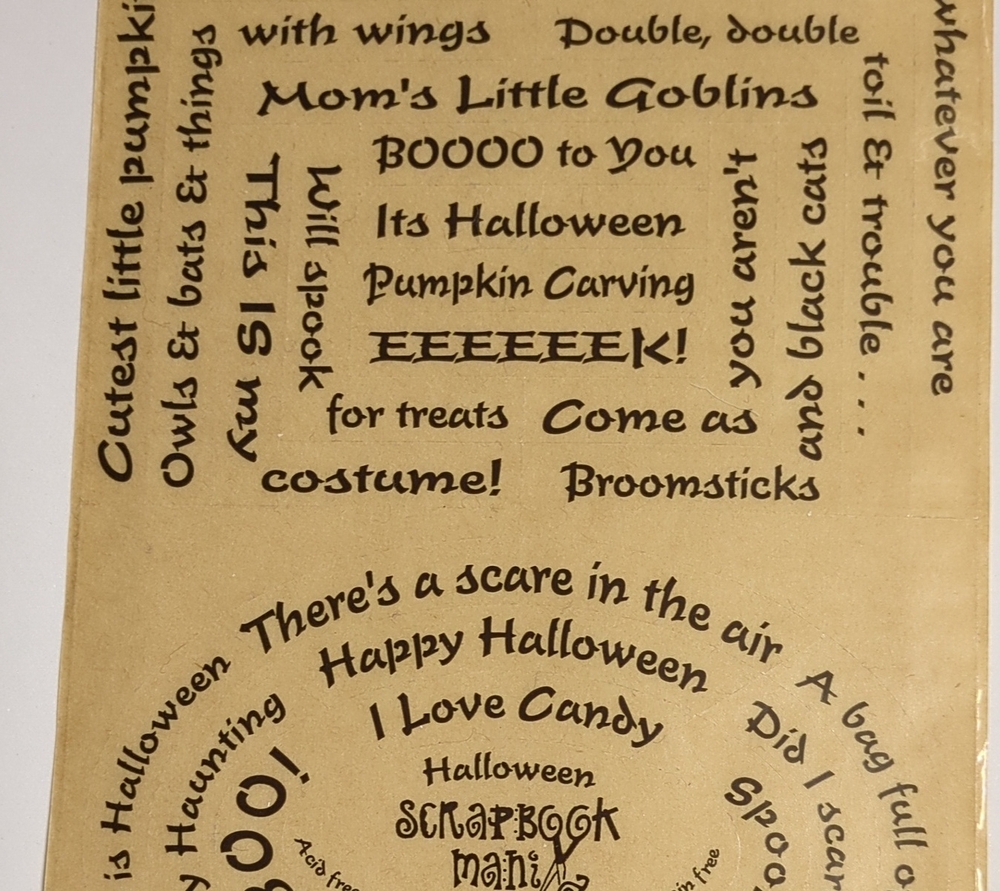 with wings
Double, double
toil & trouble . . .
whatever you are
Cutest little
Owls & bats & things
Mom's Little Goblins
This IS my
Will spook
BOOOO to You
Its Halloween
Pumpkin Carving
EEEEEEEK!
you aren't
and black cats
for treats
Come as
costume!
Broomsticks
There's a scare in the air
is Halloween
Happy Halloween
A bag full
Haunting
I Love Candy
Did I
BOO!
Halloween
SCRAPBOOK
Acid
free